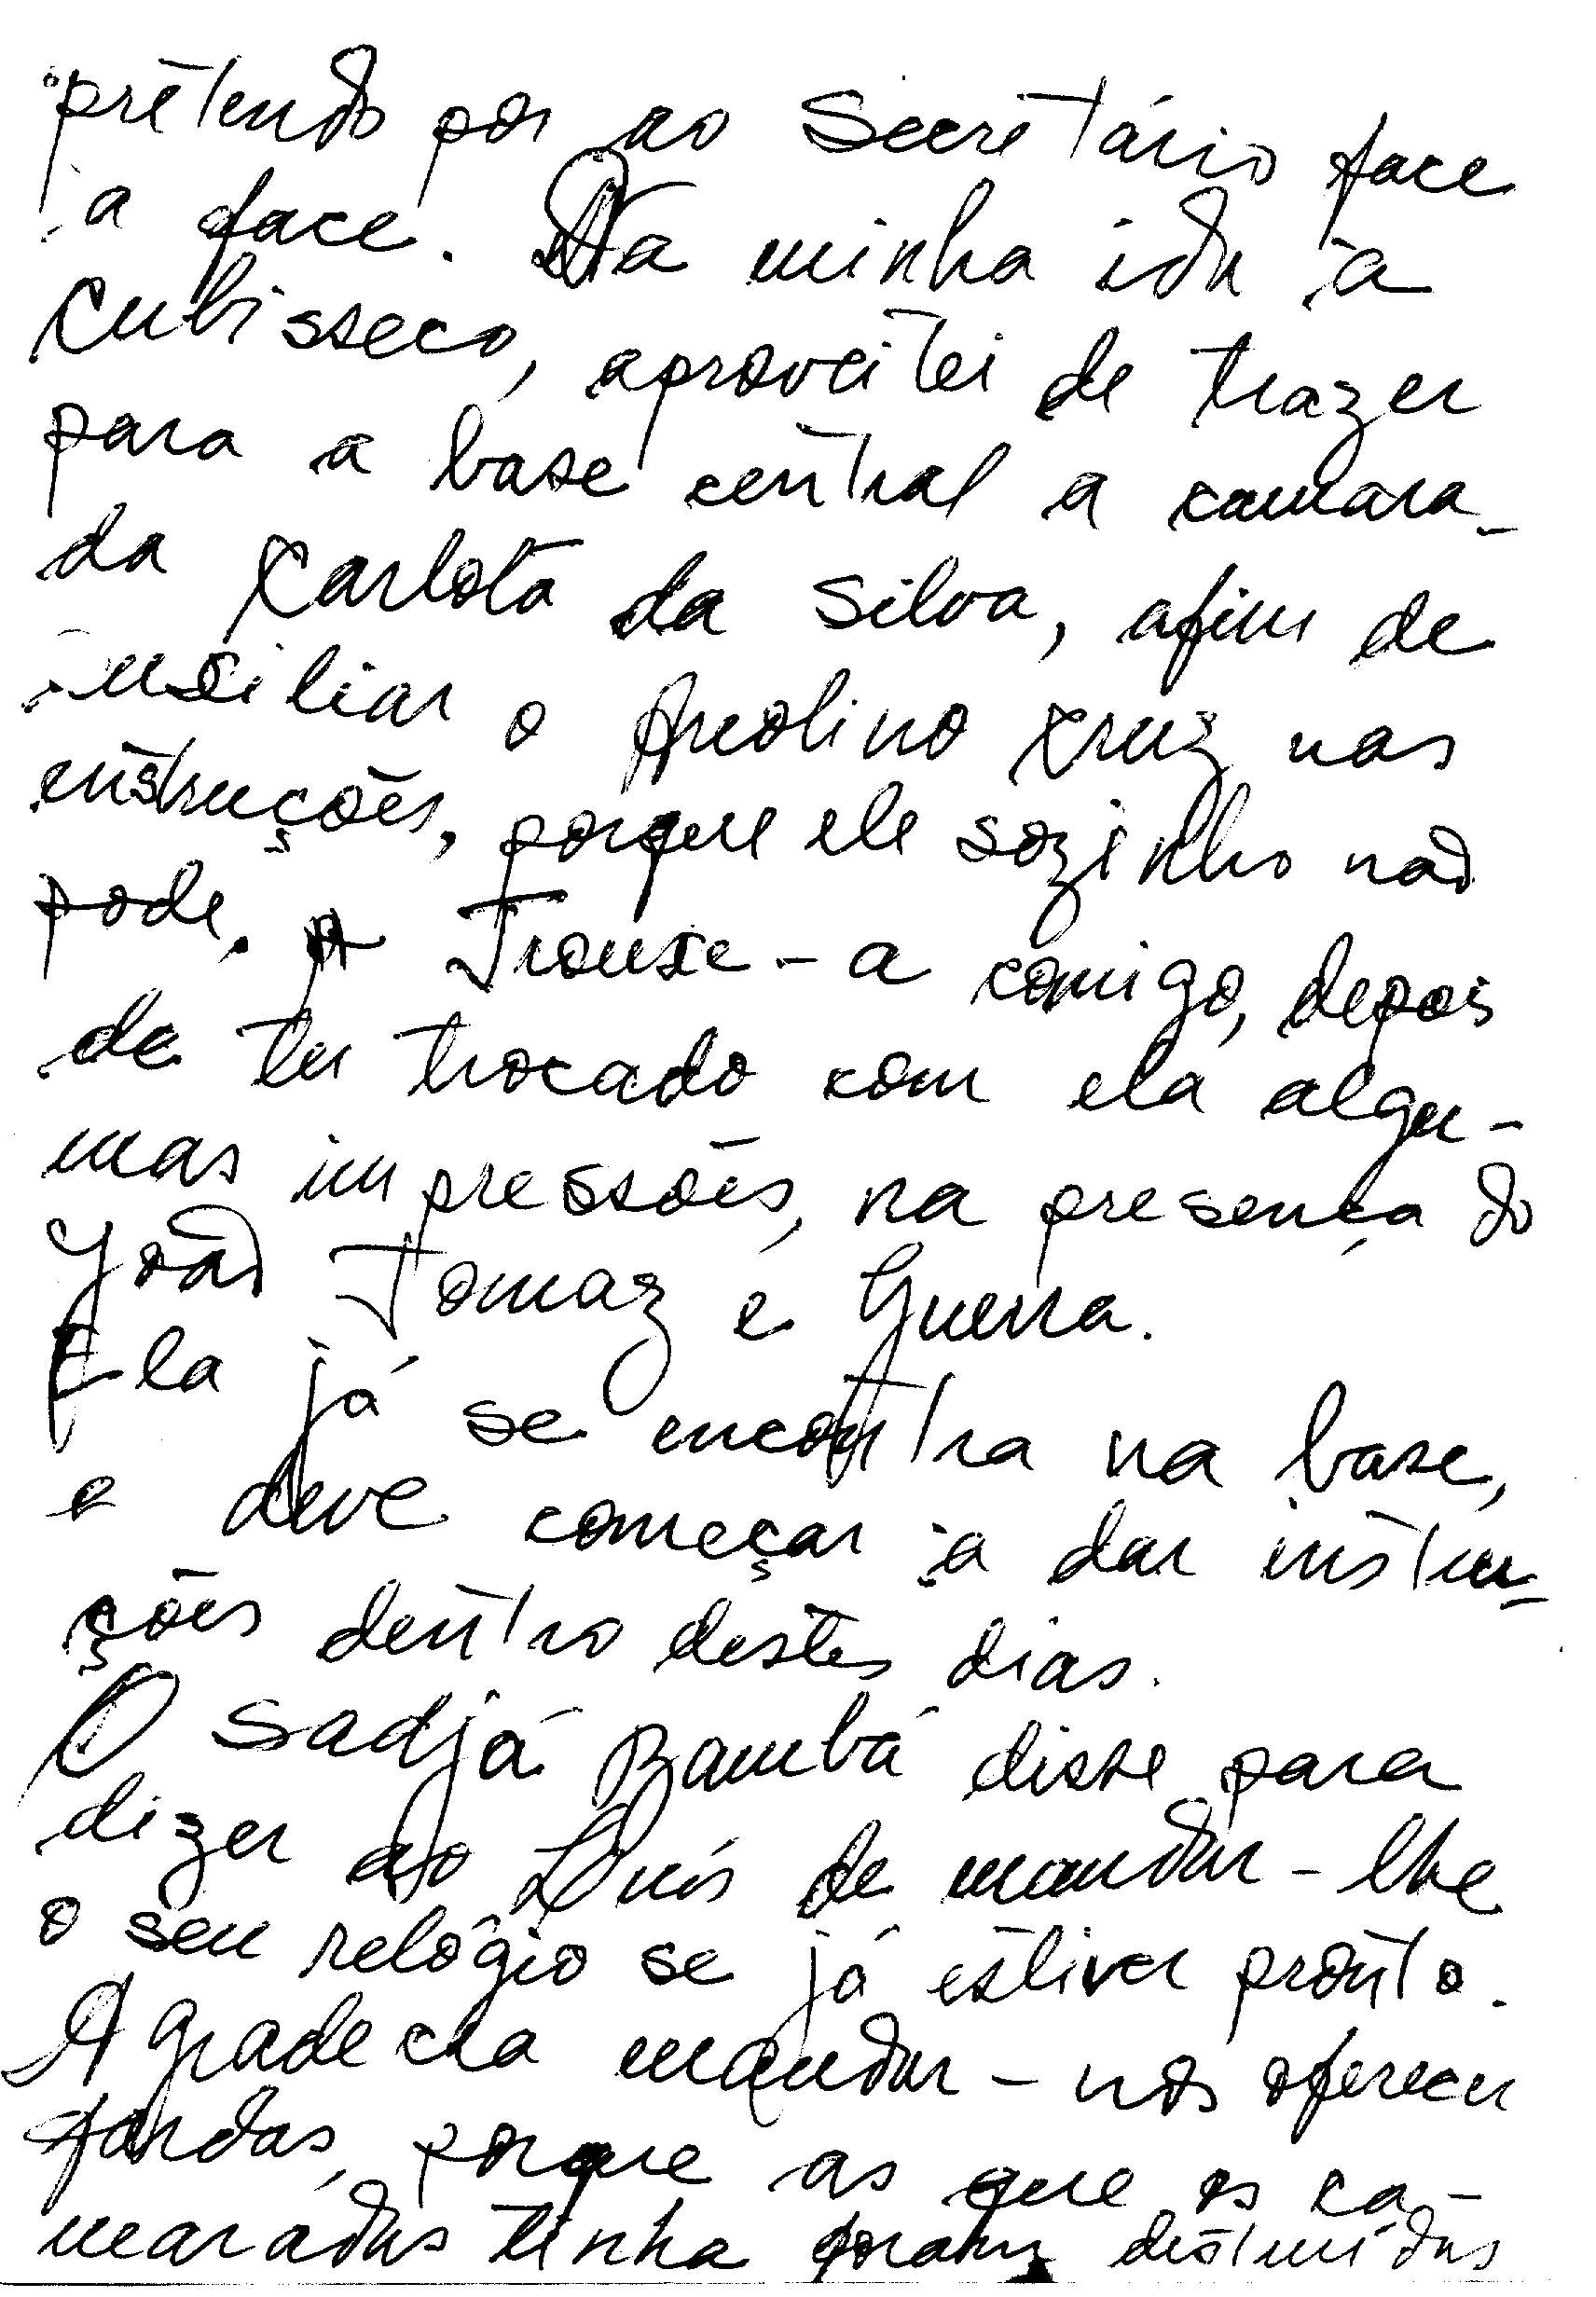 pretendo pôr ao Secretário face
a face. Na minha ida à
Cubisseco, aproveitei de trazer
para a base central a camara-
da Carlota da Silva, afim de
auxiliar o Arcolino Cruz nas
instruções, porque ele sozinho não
pode. Trouxe-a comigo, depois
de ter trocado com ela algu-
mas impressões, na presença do
João Tomaz e Guerra.
Ela já se encontra na base,
e deve começar a dar instru-
ções dentro destes dias.
O Sadjá Bambá disse para
dizer ao Luís de mandar-lhe
o seu relógio se já estiver pronto.
Agradecia mandar-nos oferecer
fardas, porque as que os ca-
maradas tinha foram destruídas